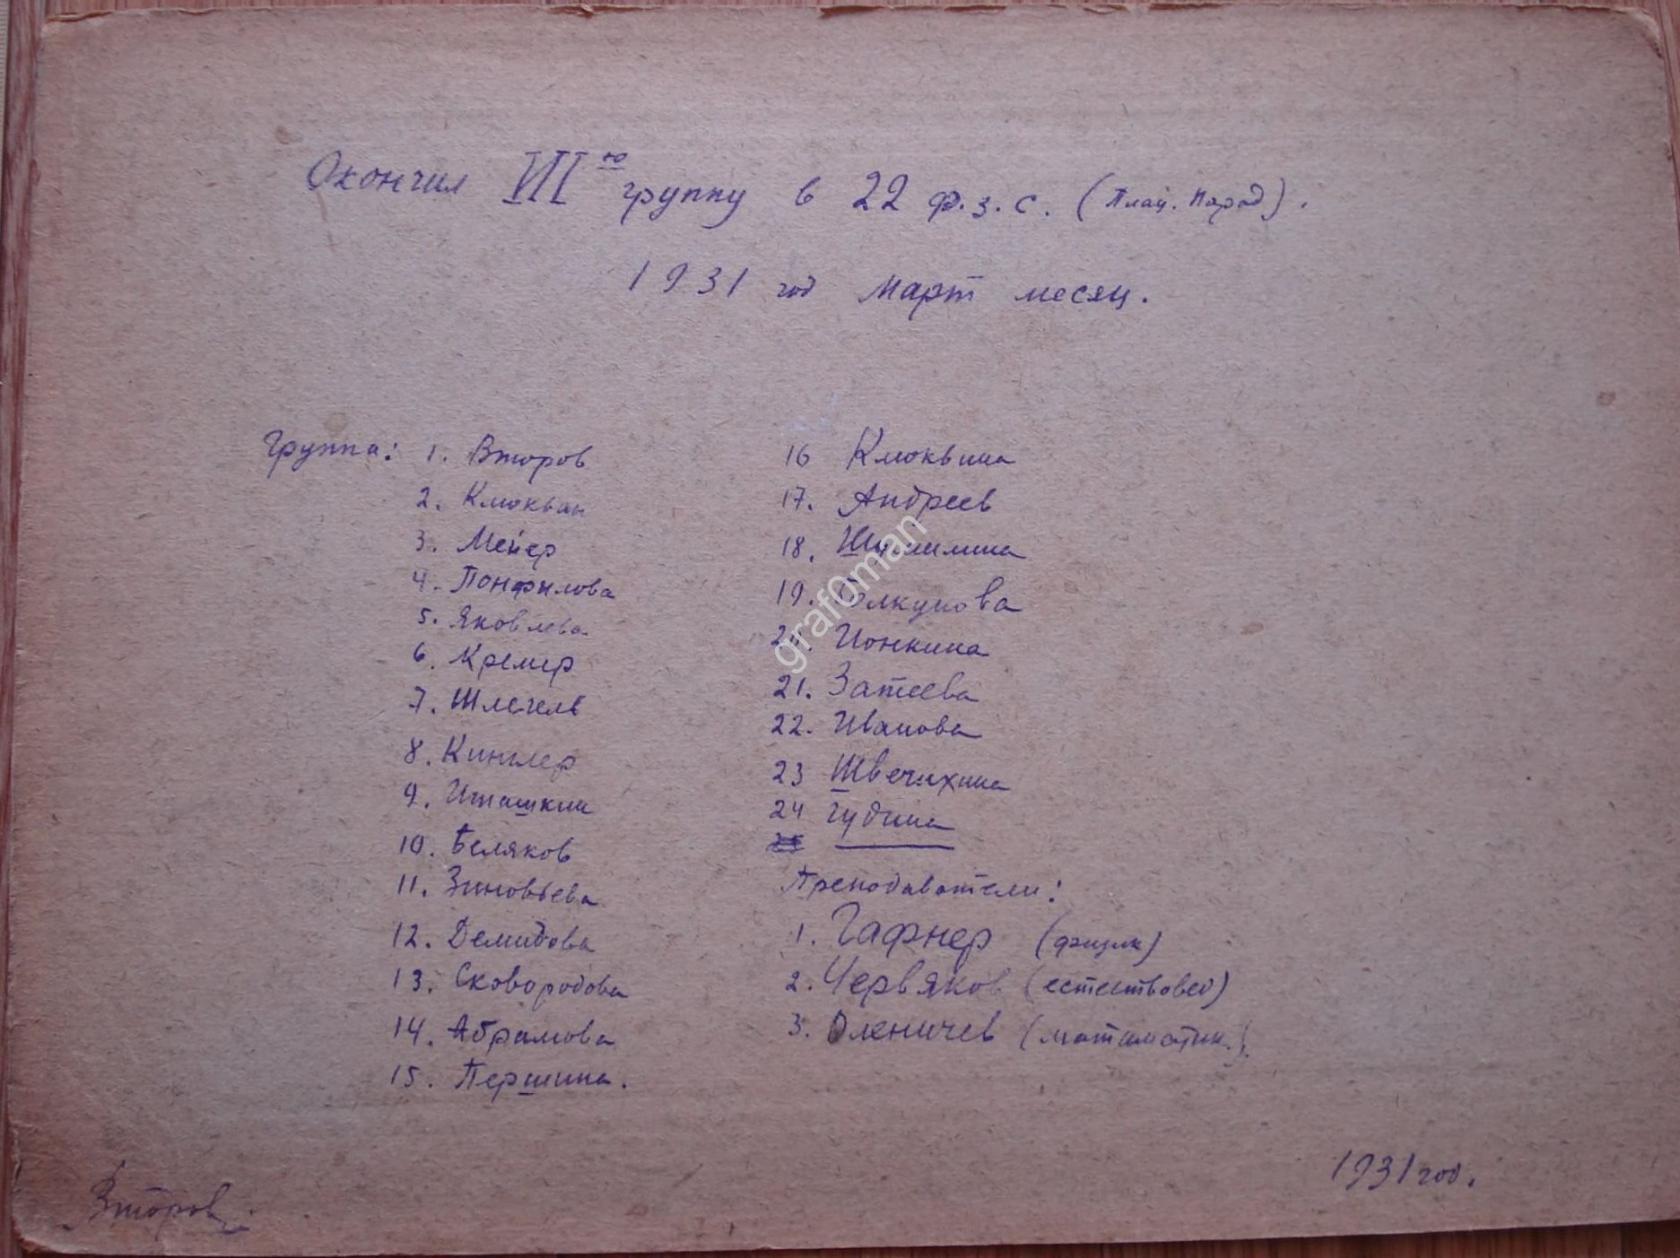 Окончил VII ю группу в 22 ф.з.с. (Плац. Парад).
1931 год март месяц.
Группа: 1. Второв
2. Клюквин
3. Мейер
4. Понфилова
5. Яковлева
6. Кремер
7. Шлегель
8. Кинглер
9. Игашкин
10. Беляков
11. Зиновьева
12. Демидова
13. Сковородова
14. Абрамова
15. Першина.
16 Клюквина
17. Андреев
18.
19.
Ионкина
21. Затеева
22. Иванова
23 Швечихина
24 Гудина
Преподаватели:
1. Гафнер (физик)
2. Червяков (естествовед)
3. Оленичев (математик.).
Второв
1931 год.
grafoman